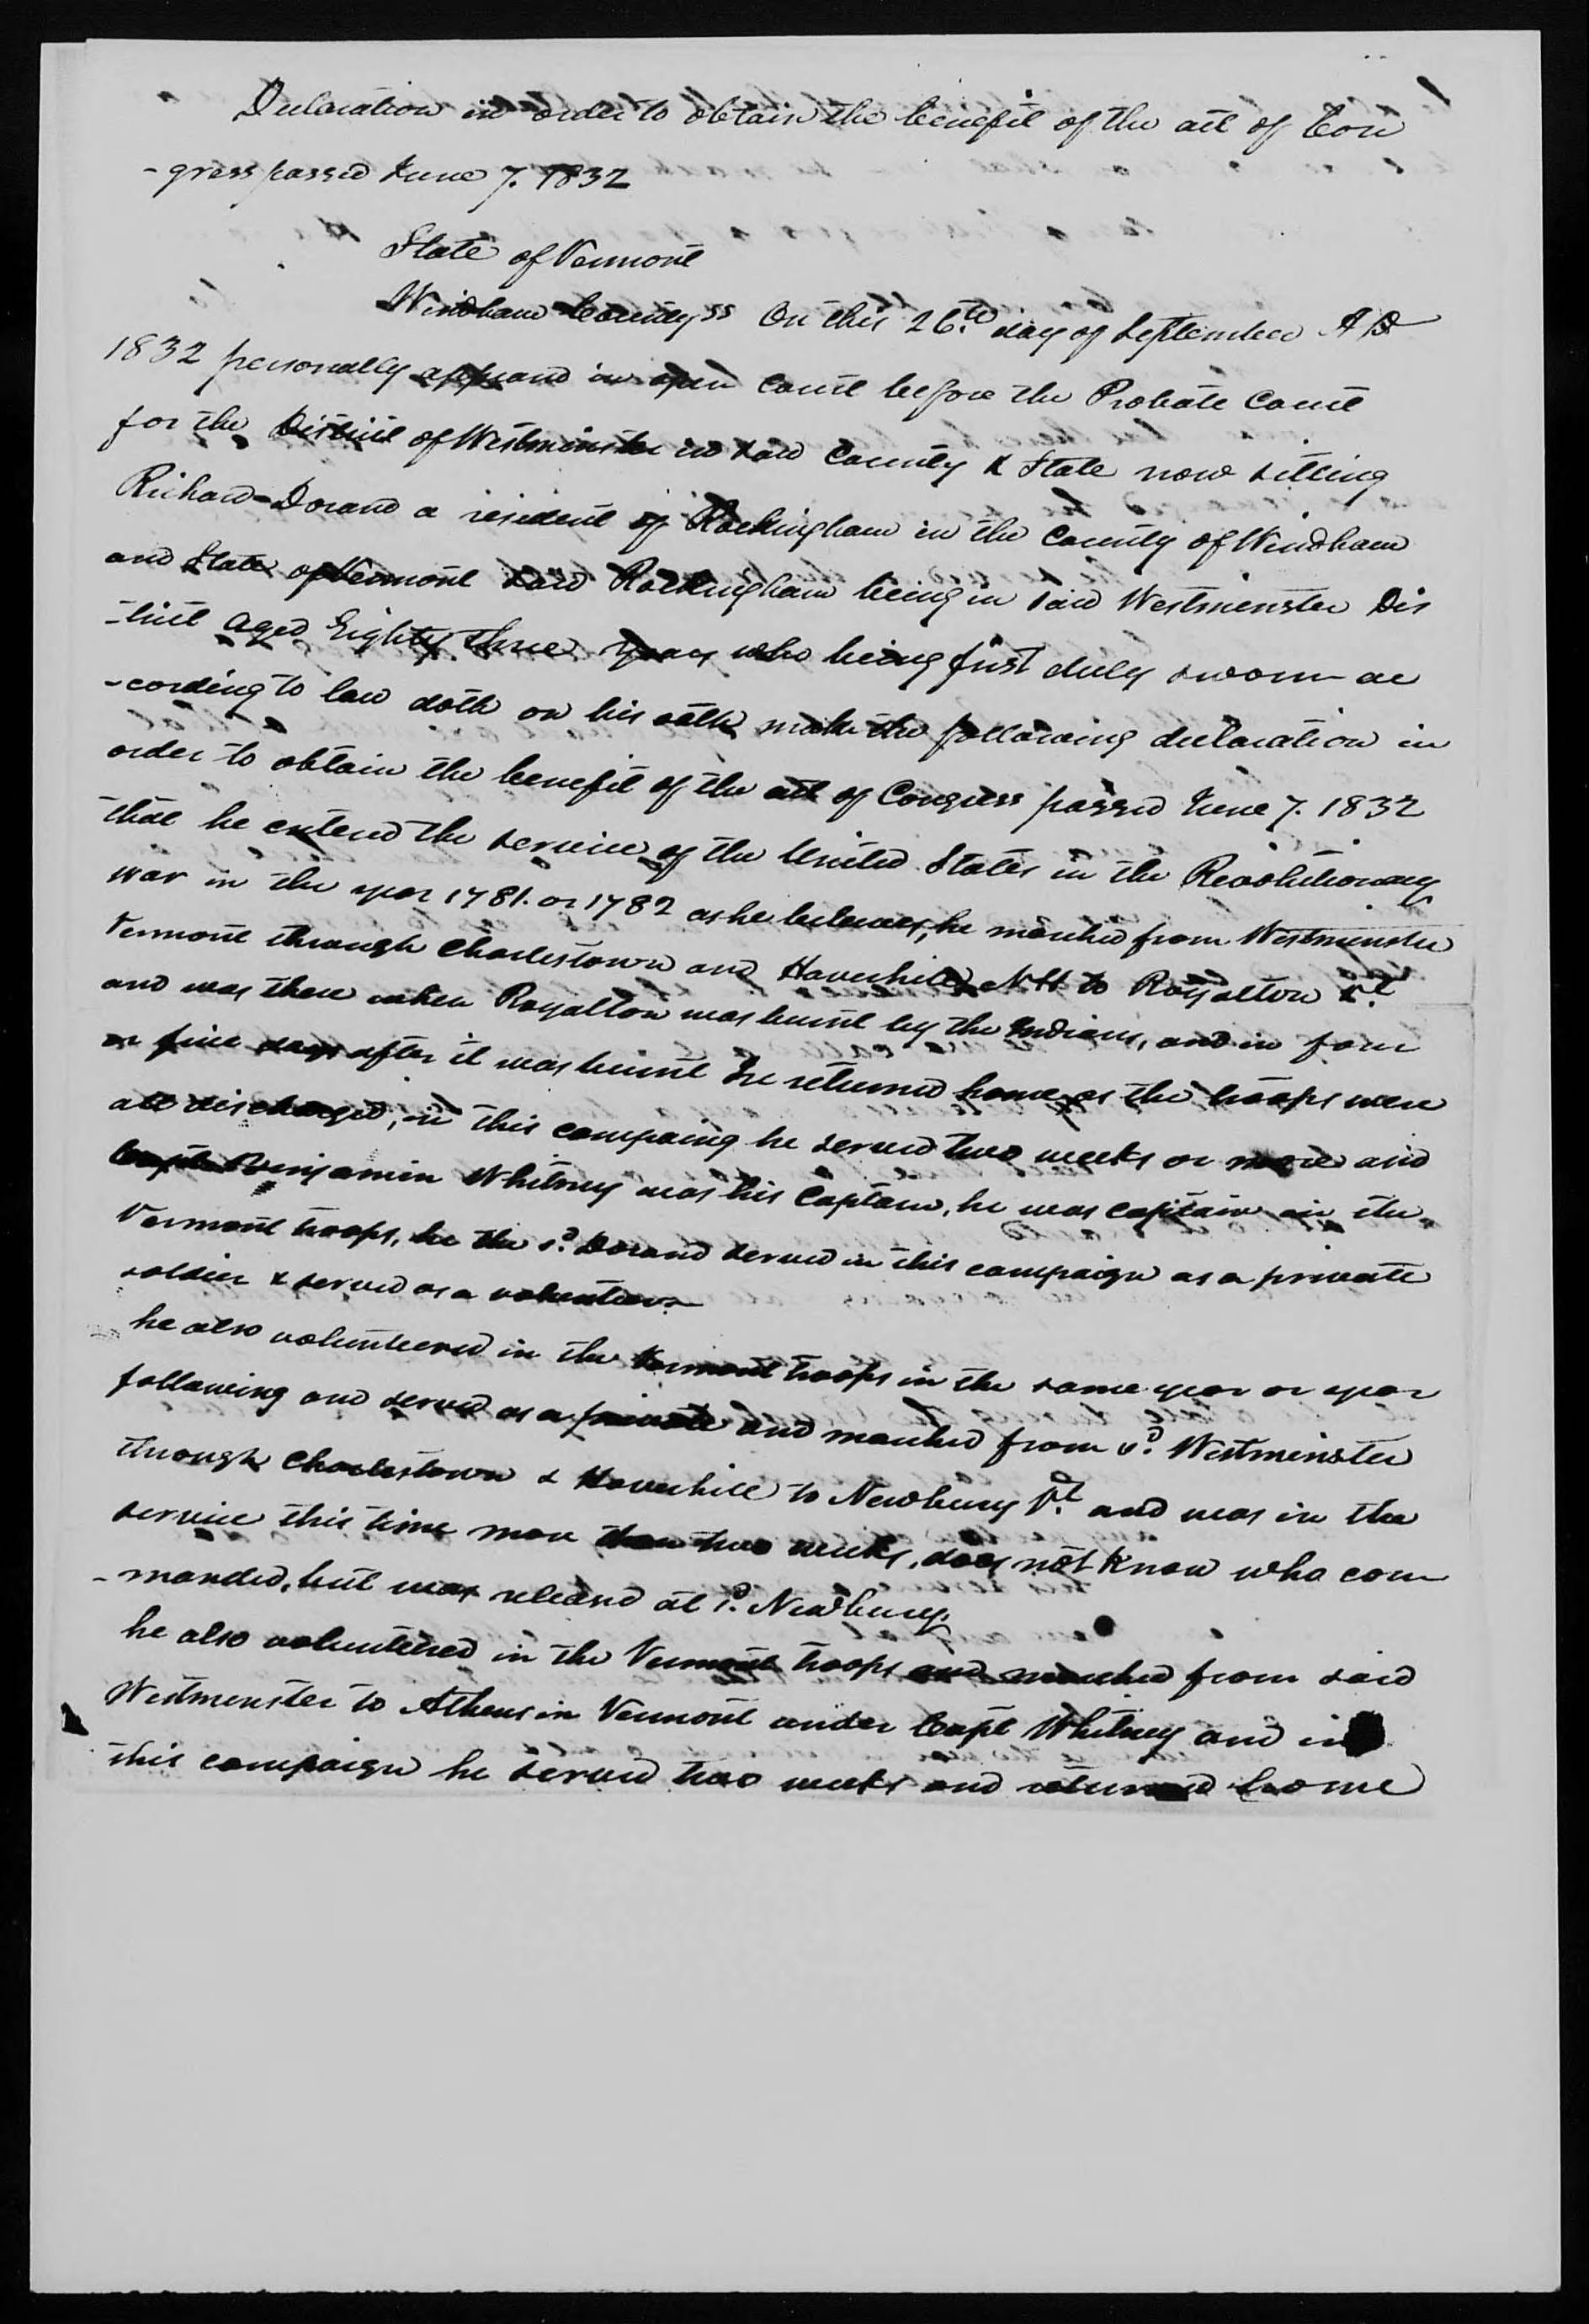 Declaration in order to obtain the benefit of the act of Con
-gress passed June 7. 1832
State of Vermont
Windham County ss On this 26.th day of September AD
1832 personally appeard in open court before the Probate Court
for the District of Westminster in said County & State now sitting
Richard Dorand a resident of Rockingham in the County of Windham
and State of Vermont said Rockingham being in said Westminster Dis
-trict aged Eighty three years who being first duly sworn ac
-cording to law doth on his oath make the following declaration in
order to obtain the benefit of the act of Congress passed June 7. 1832
that he entered the service of the United States in the Revolutionary
war in the year 1781. or 1782 as he believes, he marched from Westminster
Vermont through Charlestown and Haverhill N H to Royalton Vt
and was there when Royalton was burnt by the Indians, and in four
or five days after it was burnt he returned home as the troops were
all discharged, in this campaing he served two weeks or more and
Capt. Benjamin Whitney was his Captain, he was captain in the
Vermont troops, he the sd. Dorand served in this campaign as a private
soldier & served as a volunteer
he also volunteered in the Vermont troops in the same year or year
following and served as a private and marched from sd. Westminster
through Charlestown & Haverhill to Newbury Vt. and was in the
service this time more than two weeks, does not know who com
-manded, but was releasd at sd. Newbury.
he also volunteered in the Vermont troops and marched from said
Westminster to Athens in Vermont under Capt Whitney and in
this campaign he served two weeks and returned home